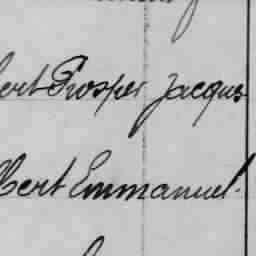 bert Prosper Jacques
lbert Emmanuel.